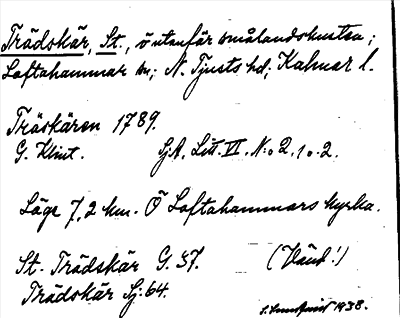 Trädskär, St., ö utanför smålandskusten;
Loftahammar sn; N. Tjusts hd; Kalmar l.
Träskären 1789.
G. Klint. Sj.A. Litt. VI. N:o 2, 1 o. 2.
Läge 7,2 km. Ö Loftahammars kyrka.
St. Trädskär G. 37. (Vänd!)
Trädskär Sj. 64.
1938.